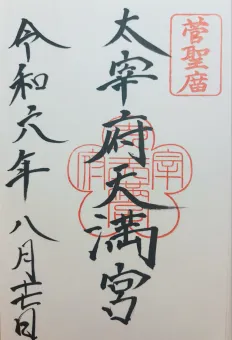 菅聖庿
太宰府天満宮
令和六年八月 日